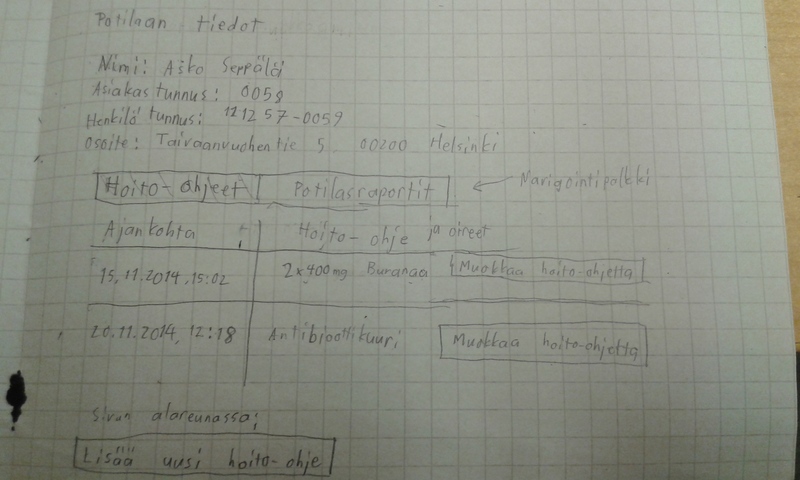 Potilaan tiedot
Nimi: Asko Seppälä
Asiakas tunnus: 0059
Henkilö tunnus: 121257-0059
Osoite: Taivaanvuohentie 5 00200 Helsinki
Hoito-ohjeet Potilasraportit Navigointipalkki
Ajankohta Hoito-ohje ja oireet
15.11.2014, 15:02 2x400mg Buranaa Muokkaa hoito-ohjetta
20.11.2014, 12:18 Antibioottikuuri Muokkaa hoito-ohjetta
Sivun alareunassa:
Lisää uusi hoito-ohje